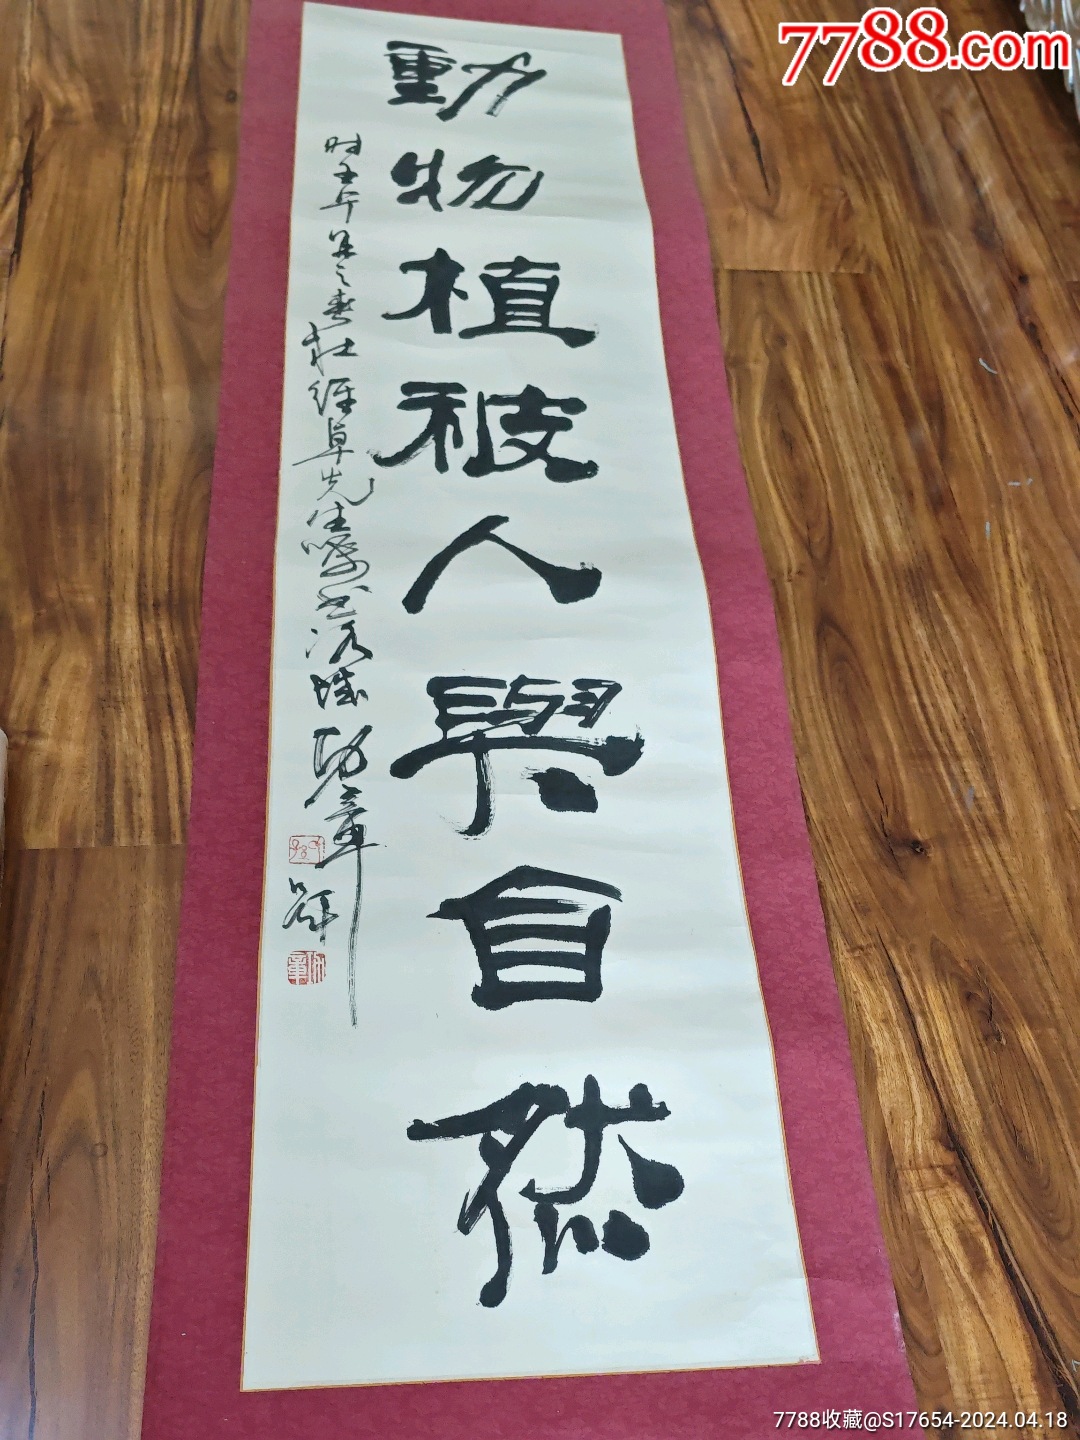 7788.com
動物植被人與自然
時壬午年之春杜經卓先生囑書洛城
7788收藏@S17654-2024.04.18